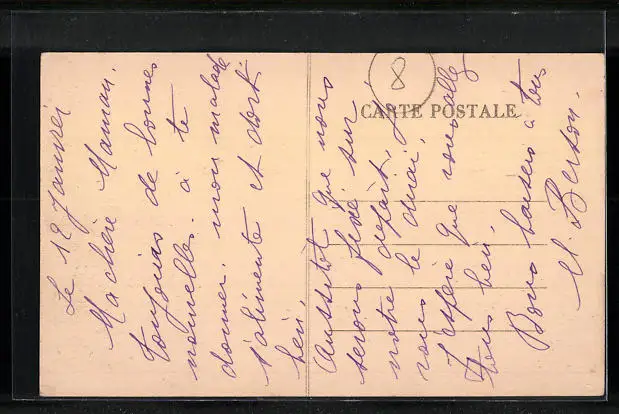 CARTE POSTALE
8
Le 12 Janvier
Ma chère Maman,
toujours de bonnes
nouvelles à te
donner. mon malade
s'alimente et dort
bien.
Aussitot que nous
serons fixé sur
notre départ, je
vous le dirai.
J'espère que vous allez
tous bien.
Bons baisers à tous
M. Berson.